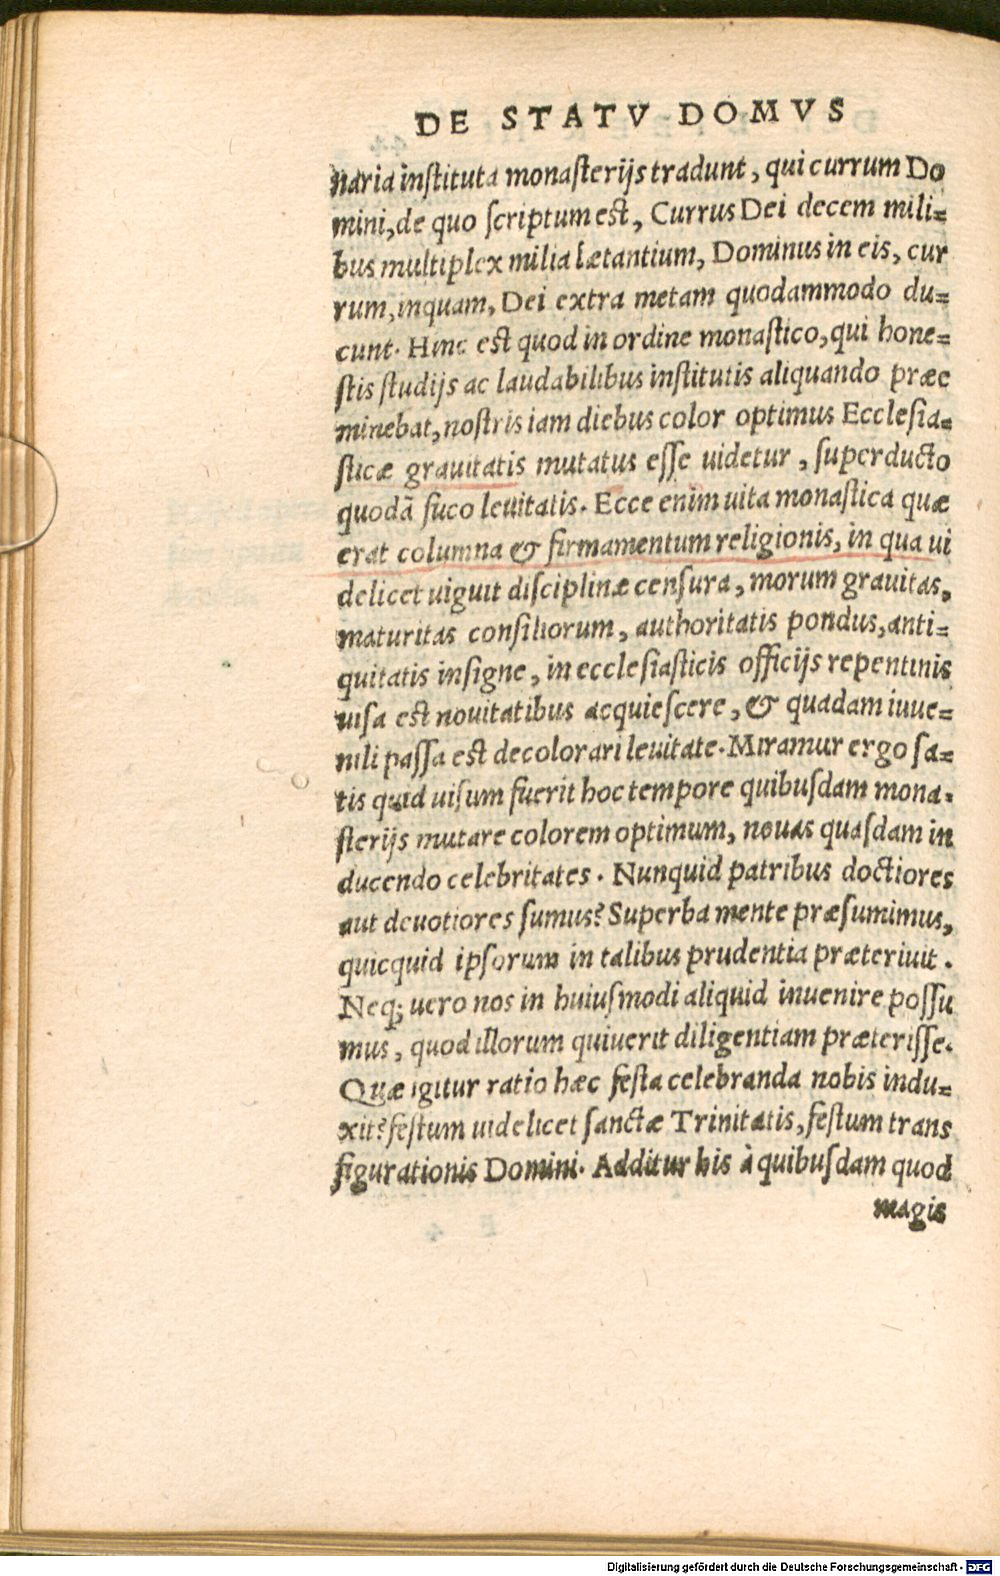 DE STATV DOMVS
naria instituta monasterijs tradunt, qui currum Do
mini, de quo scriptum est, Currus Dei decem mili=
bus multiplex milia lætantium, Dominus in eis, cur
rum, inquam, Dei extra metam quodammodo du=
cunt. Hinc est quod in ordine monastico, qui hone=
stis studijs ac laudabilibus institutis aliquando præe
minebat, nostris iam diebus color optimus Ecclesia=
sticæ grauitatis mutatus esse uidetur, superducto
quodã fuco leuitatis. Ecce enim uita monastica quæ
erat columna & firmamentum religionis, in qua ui
delicet uiguit disciplinæ censura, morum grauitas,
maturitas consiliorum, authoritatis pondus, anti=
quitatis insigne, in ecclesiasticis officijs repentinis
uisa est nouitatibus acquiescere, & quadam iuue=
nili passa est decolorari leuitate. Miramur ergo sa=
tis quid uisum fuerit hoc tempore quibusdam mona=
sterijs mutare colorem optimum, nouas quasdam in
ducendo celebritates. Nunquid patribus doctiores
aut deuotiores sumus? Superba mente præsumimus,
quicquid ipsorum in talibus prudentia præteriuit.
Neq; uero nos in huiusmodi aliquid inuenire possu
mus, quod illorum quiuerit diligentiam præterisse.
Quæ igitur ratio hæc festa celebranda nobis indu=
xit? festum uidelicet sanctæ Trinitatis, festum trans
figurationis Domini. Additur his à quibusdam quod
magis
Digitalisierung gefördert durch die Deutsche Forschungsgemeinschaft - DFG